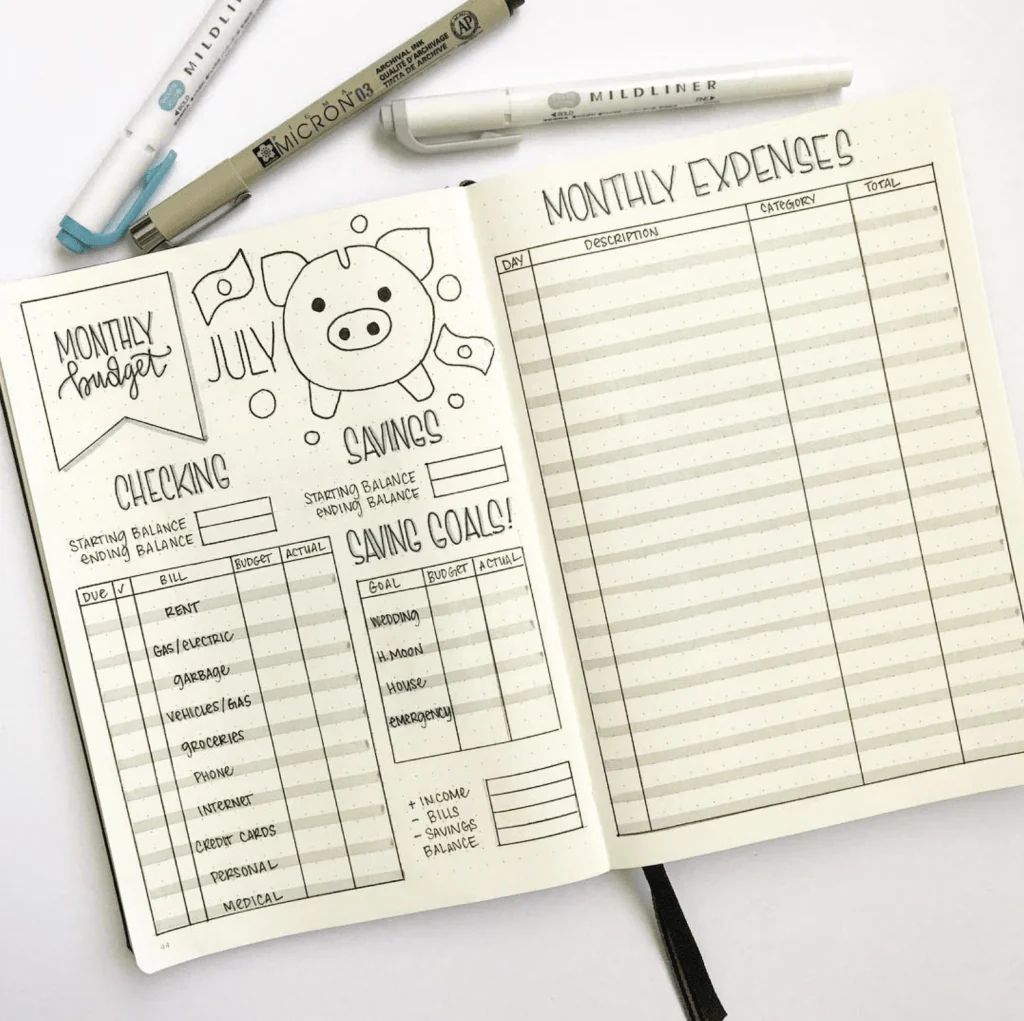 MILDLINER
BOLD
SAKURA
MICRON 03
ARCHIVAL INK
QUALITÉ D'ARCHIVAGE
TINTA DE ARCHIVE
AP
MILDLINER
BOLD
FINE
MONTHLY
budget
JULY
CHECKING
STARTING BALANCE
ENDING BALANCE
DUE ✓ BILL BUDGET ACTUAL
RENT
GAS/ELECTRIC
GARBAGE
VEHICLES/GAS
GROCERIES
PHONE
INTERNET
CREDIT CARDS
PERSONAL
MEDICAL
44
SAVINGS
STARTING BALANCE
ENDING BALANCE
SAVING GOALS!
GOAL BUDGET ACTUAL
WEDDING
H.MOON
HOUSE
EMERGENCY
+ INCOME
- BILLS
- SAVINGS
BALANCE
MONTHLY EXPENSES
DAY DESCRIPTION CATEGORY TOTAL